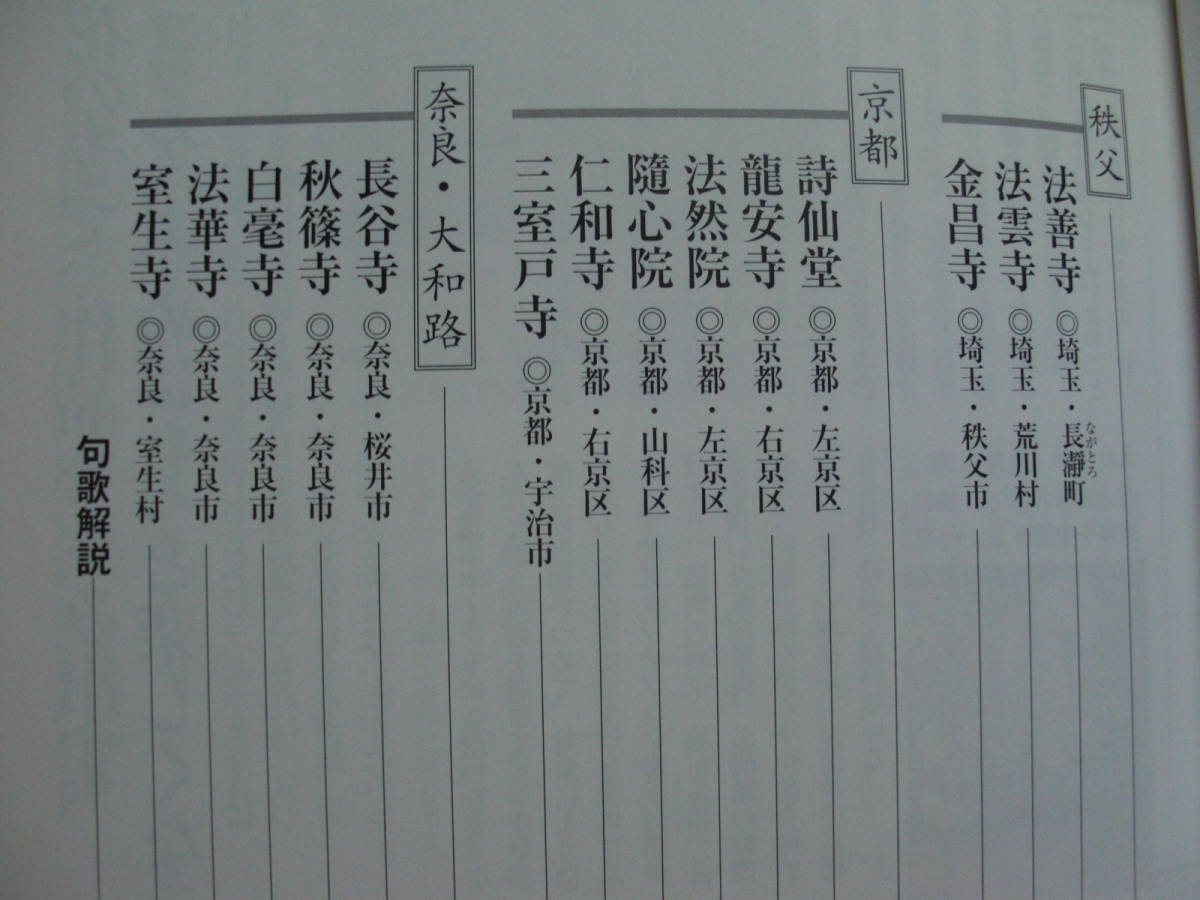 秩父
法善寺 ◎埼玉・長瀞町
ながとろ
法雲寺 ◎埼玉・荒川村
金昌寺 ◎埼玉・秩父市
京都
詩仙堂 ◎京都・左京区
龍安寺 ◎京都・右京区
法然院 ◎京都・左京区
隨心院 ◎京都・山科区
仁和寺 ◎京都・右京区
三室戸寺 ◎京都・宇治市
奈良・大和路
長谷寺 ◎奈良・桜井市
秋篠寺 ◎奈良・奈良市
白毫寺 ◎奈良・奈良市
法華寺 ◎奈良・奈良市
室生寺 ◎奈良・室生村
句歌解説